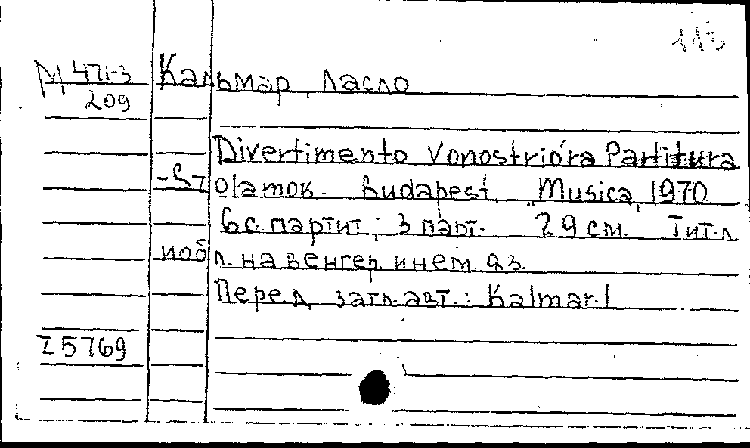 113
М 471-3 Кальмар, Ласло
209
Divertimento Vonostrióra Partitura
-Sz olamok. Budapest, "Musica", 1970
6 с. партит; 3 парт. 29 см. Тит.л
и об л. на венгер. и нем. яз.
Перед загл. авт.: Kalmar. L
I 5769